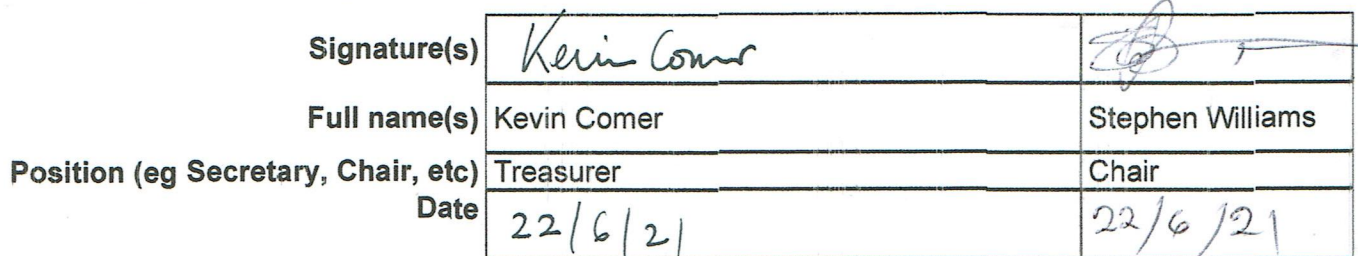 Signature(s) Kevin Comer
Full name(s) Kevin Comer Stephen Williams
Position (eg Secretary, Chair, etc) Treasurer Chair
Date 22/6/21 22/6/21